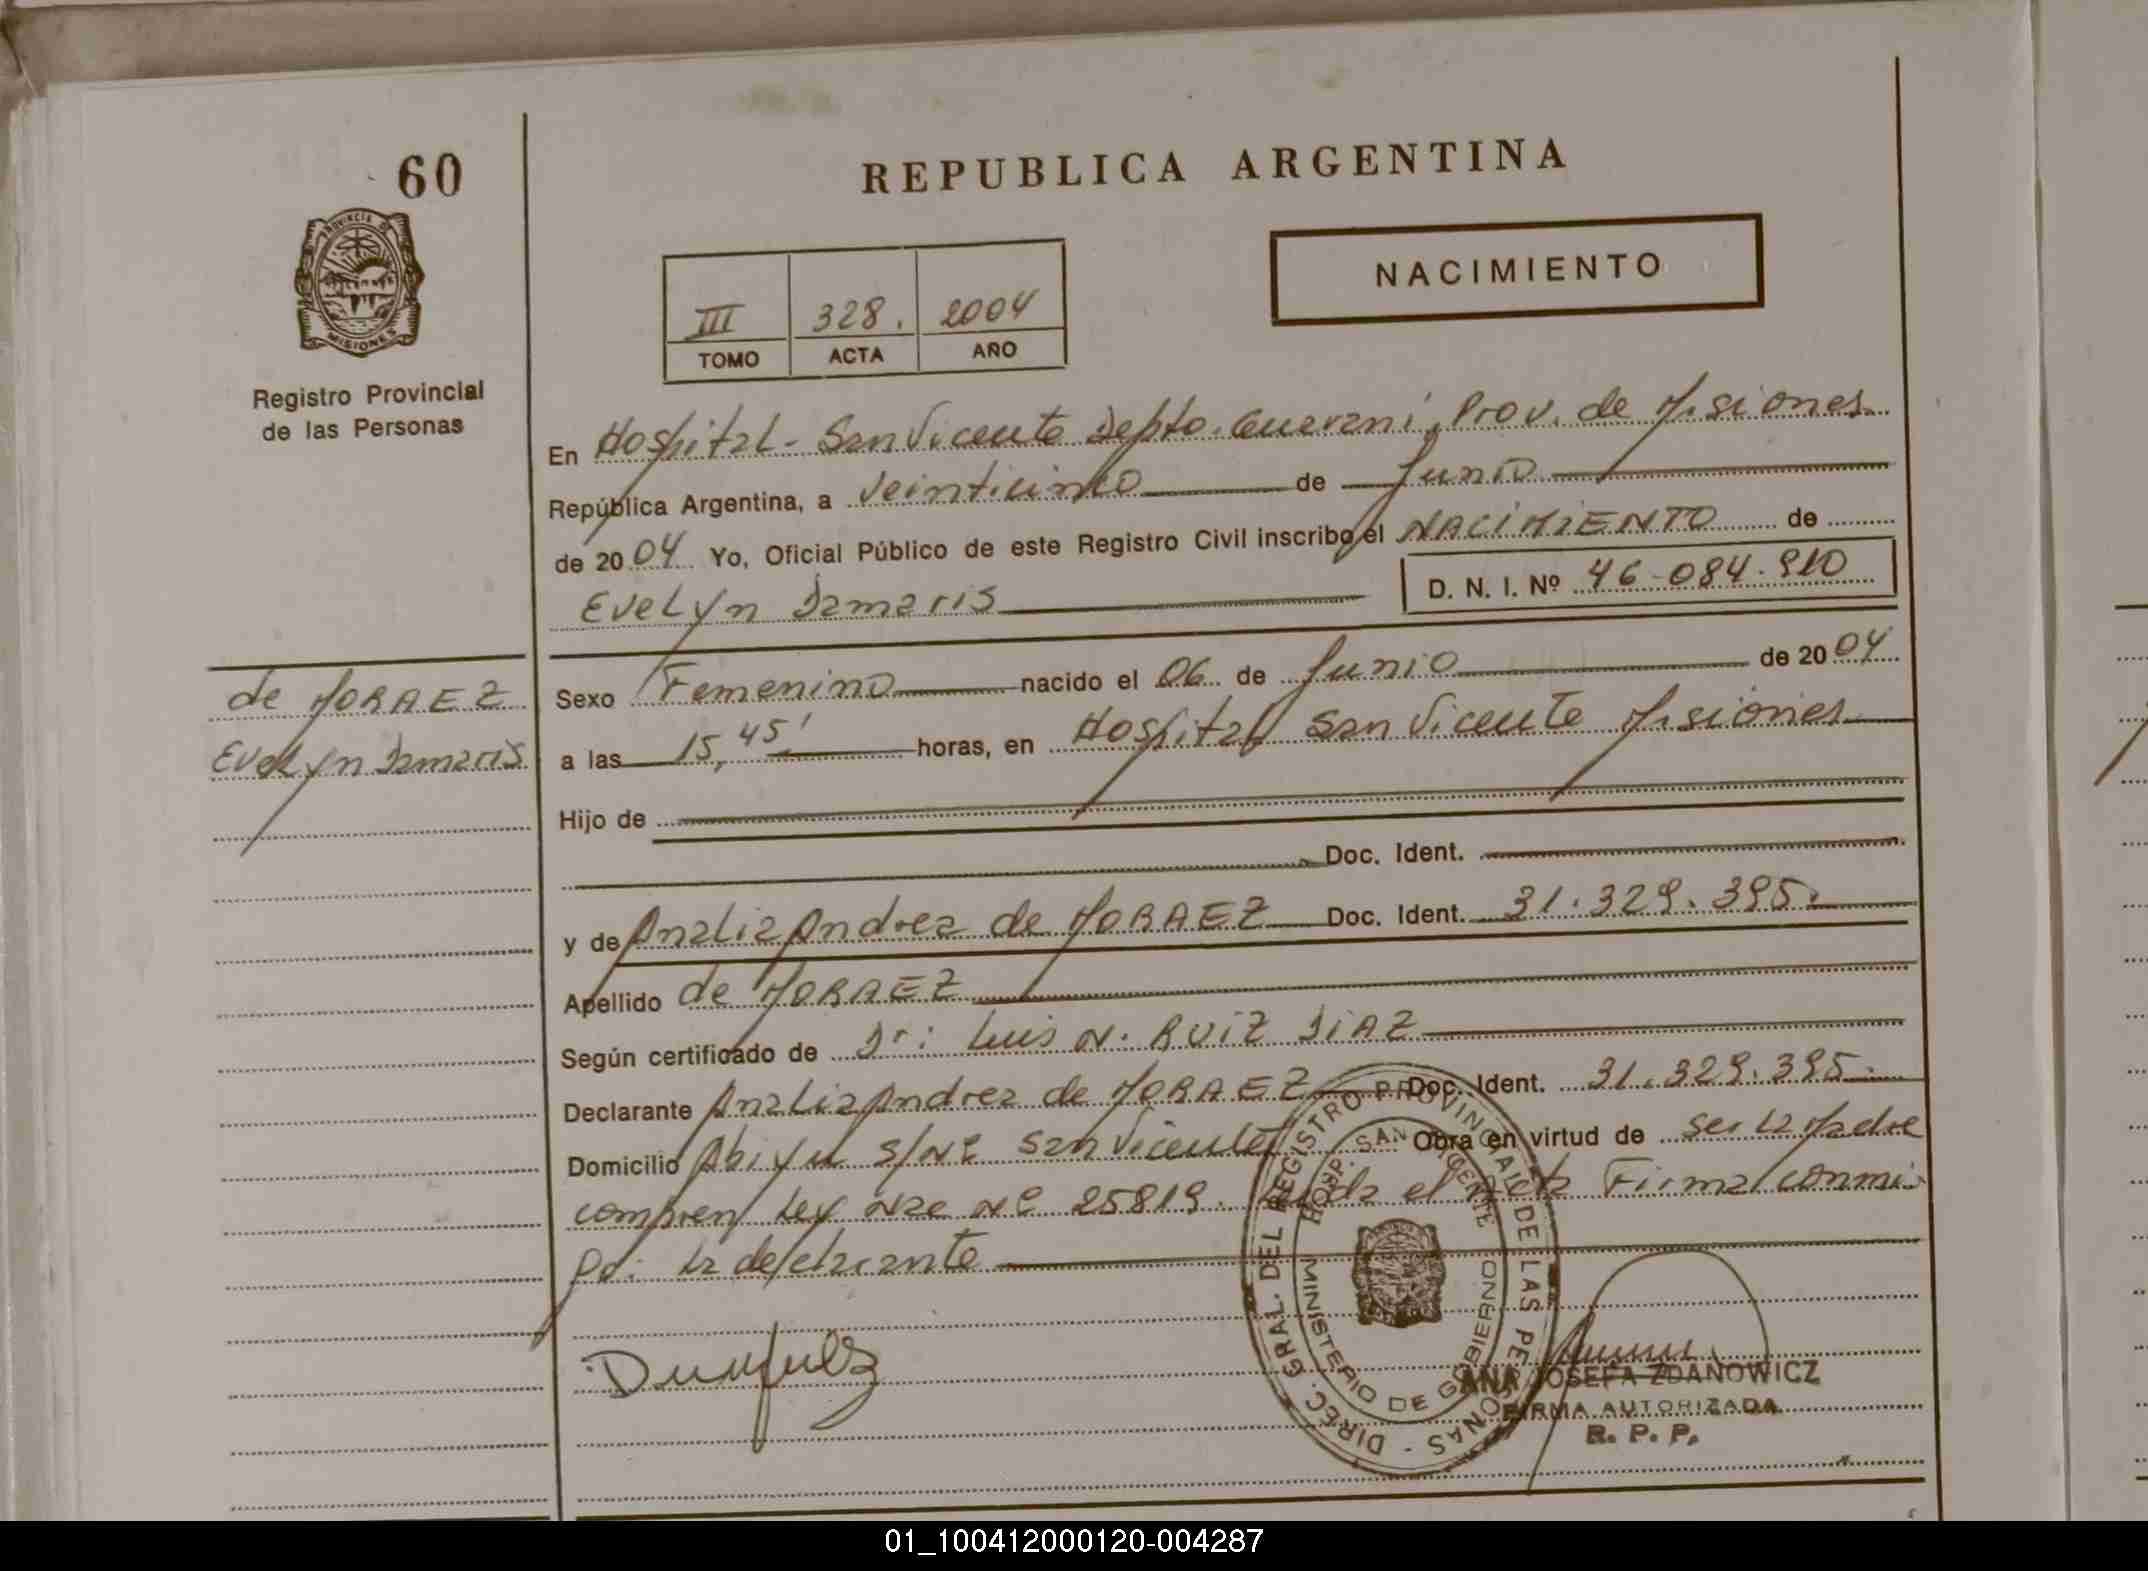 60
REPUBLICA ARGENTINA
PROVINCIA DE
MISIONES
NACIMIENTO
III 328. 2004
TOMO ACTA AÑO
Registro Provincial
de las Personas
En Hospital - San Vicente Depto. Guarani, Prov. de Misiones
República Argentina, a Veinticinco de Junio
de 2004 Yo, Oficial Público de este Registro Civil inscribo el NACIMIENTO de
Evelyn Damaris D. N. I. Nº 46-084.910
de MORAEZ
Evelyn Damaris
Sexo Femenino nacido el 06 de Junio de 2004
a las 15,45' horas, en Hospital San Vicente Misiones
Hijo de
Doc. Ident.
y de Analia Andrea de MORAEZ Doc. Ident. 31.329.395.
Apellido de MORAEZ
Según certificado de Dr: Luis N. RUIZ DIAZ
Declarante Analia Andrea de MORAEZ Doc. Ident. 31.329.395.
Domicilio Abiyu s/Nº San Vicente Obra en virtud de ser la Madre
compren Ley Nac Nº 25819. Leida el Acta Firma conmi-
go: la declarante
DIREC. GRAL. DEL REGISTRO PROVINCIAL DE LAS PERSONAS -
HOSP. SAN VICENTE
MINISTERIO DE GOBIERNO
ANA JOSEFA ZDANOWICZ
FIRMA AUTORIZADA
R. P. P.
01_100412000120-004287